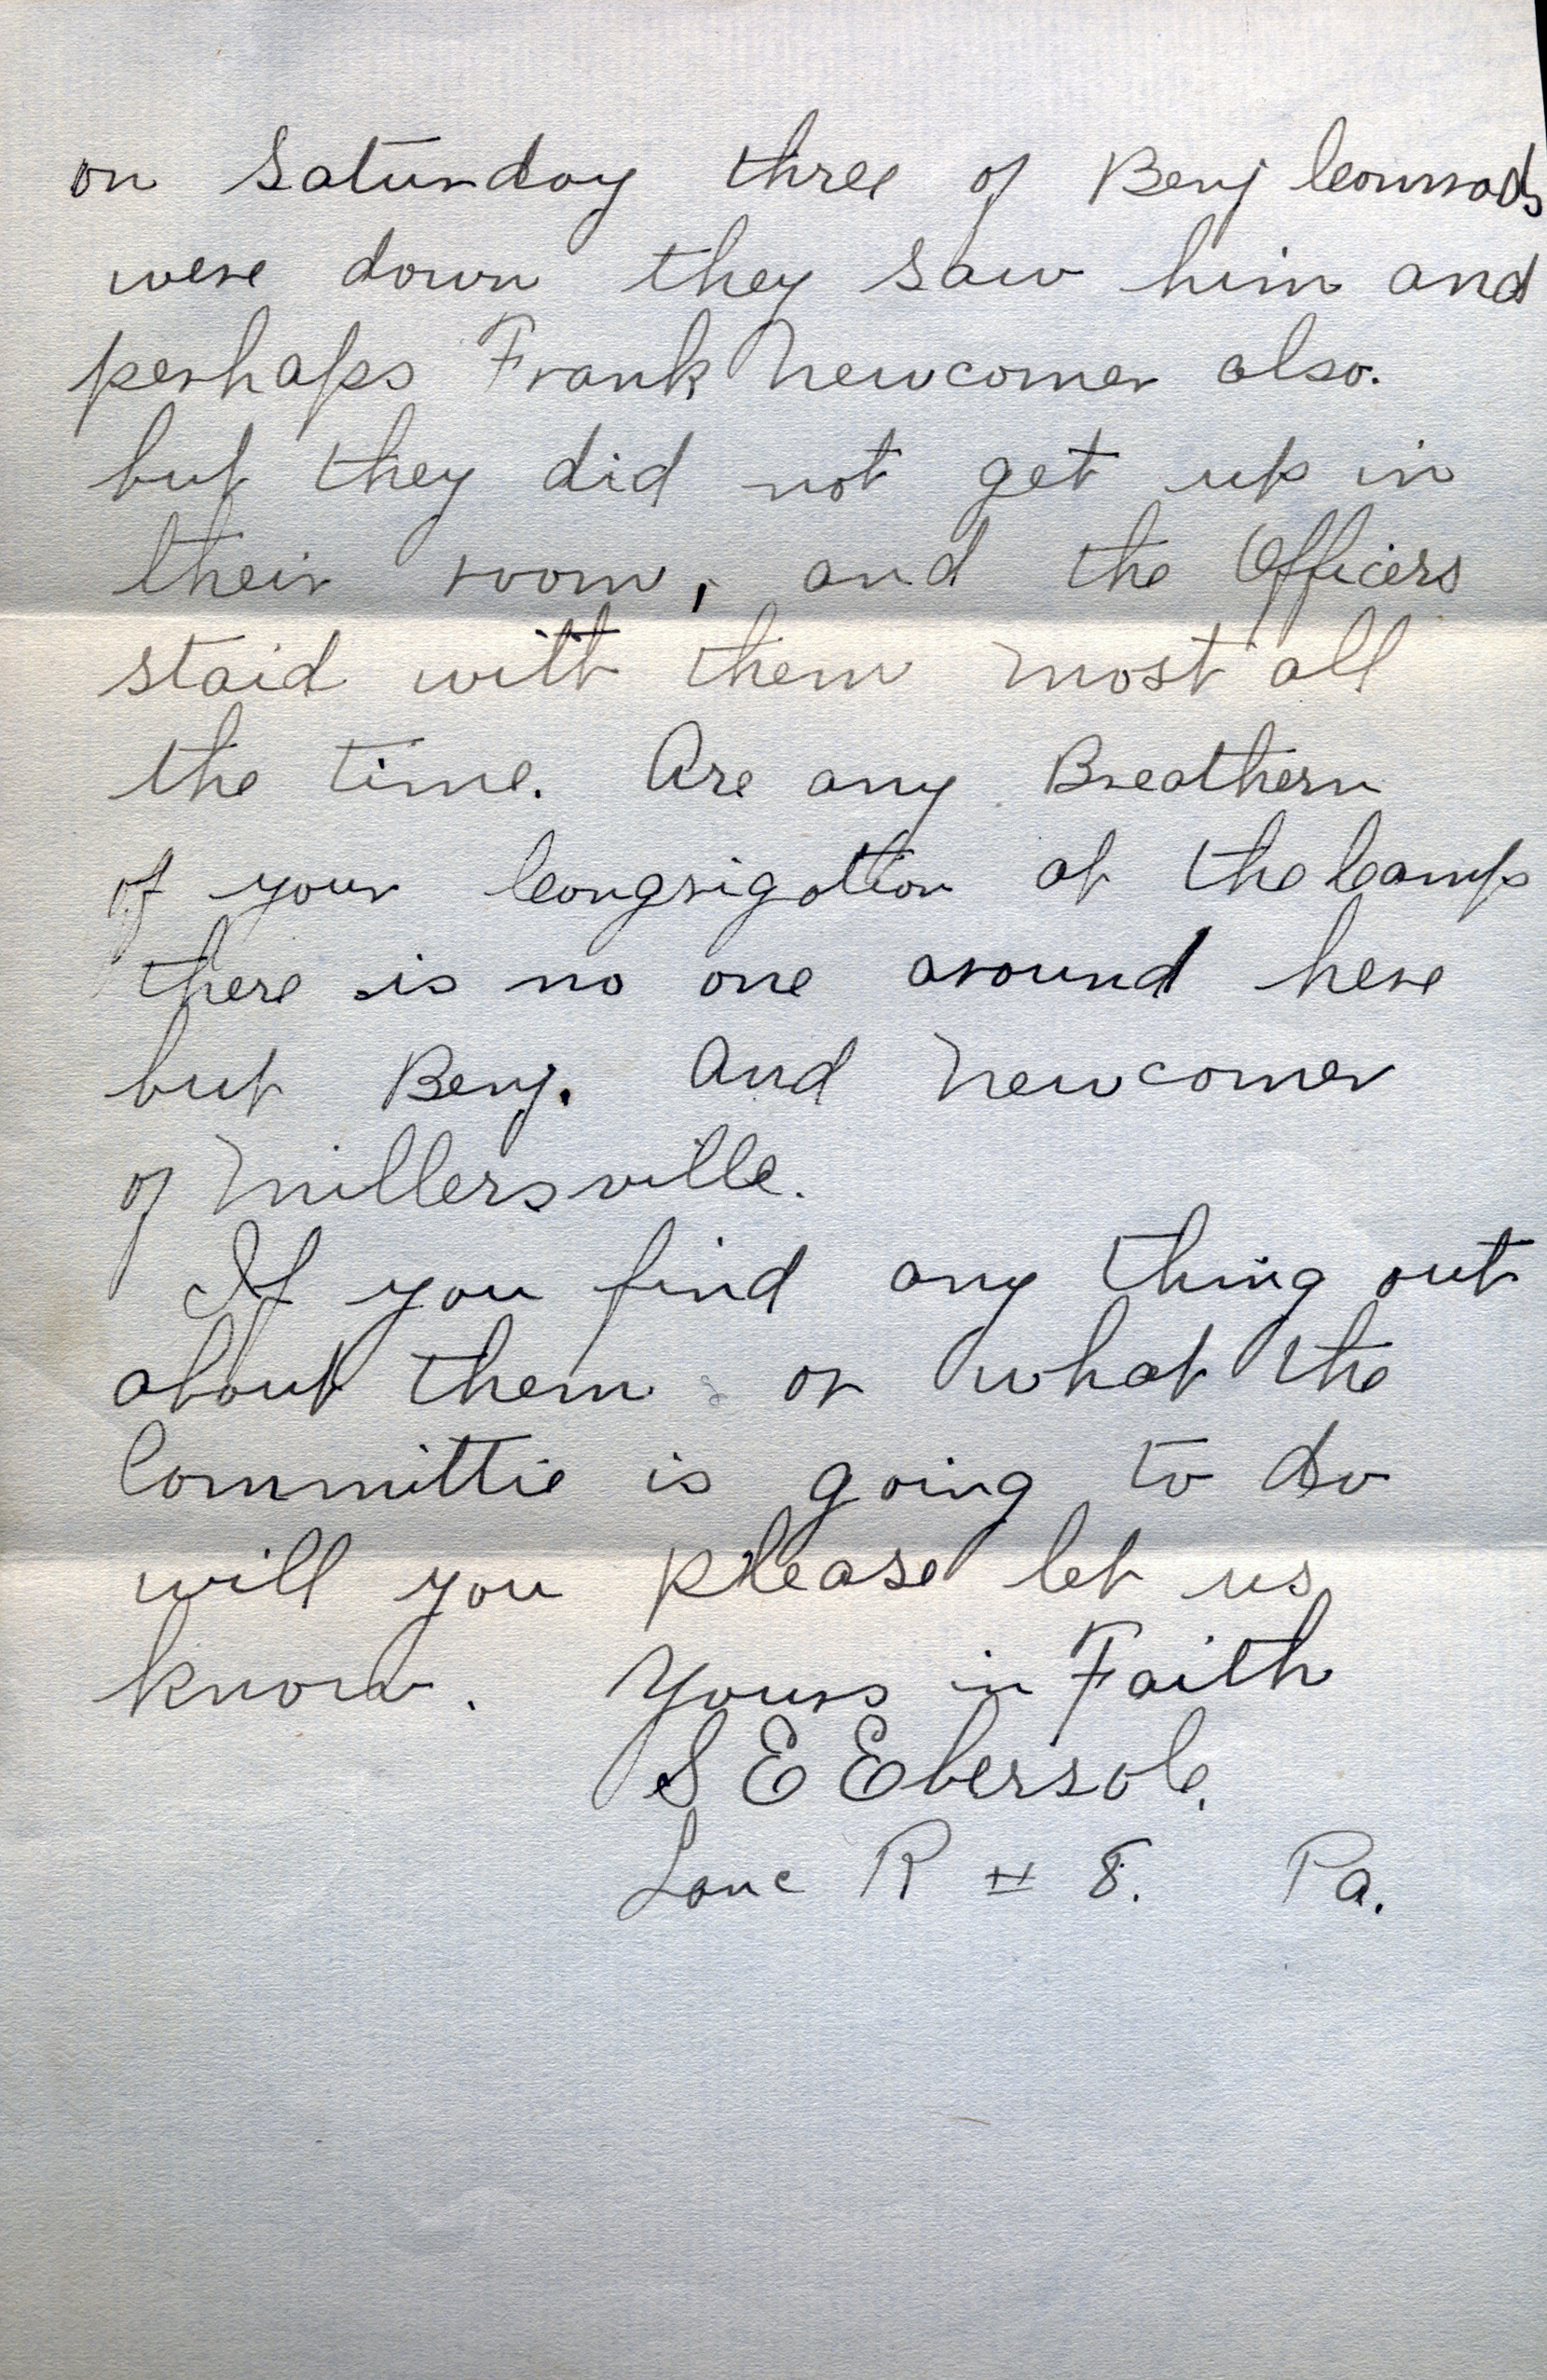 on Saturday three of Benj Comrads
were down they saw him and
perhaps Frank Newcomer also.
but they did not get up in
their room, and the Officers
staid with them most all
the time. Are any Breathern
of your Congrigation at the Camp
there is no one around here
but Benj. And Newcomer
of Millersville.
If you find any thing out
about them or what the
Committie is going to do
will you please let us
know. Yours in Faith
S E Ebersole.
Lanc R # 8. Pa.